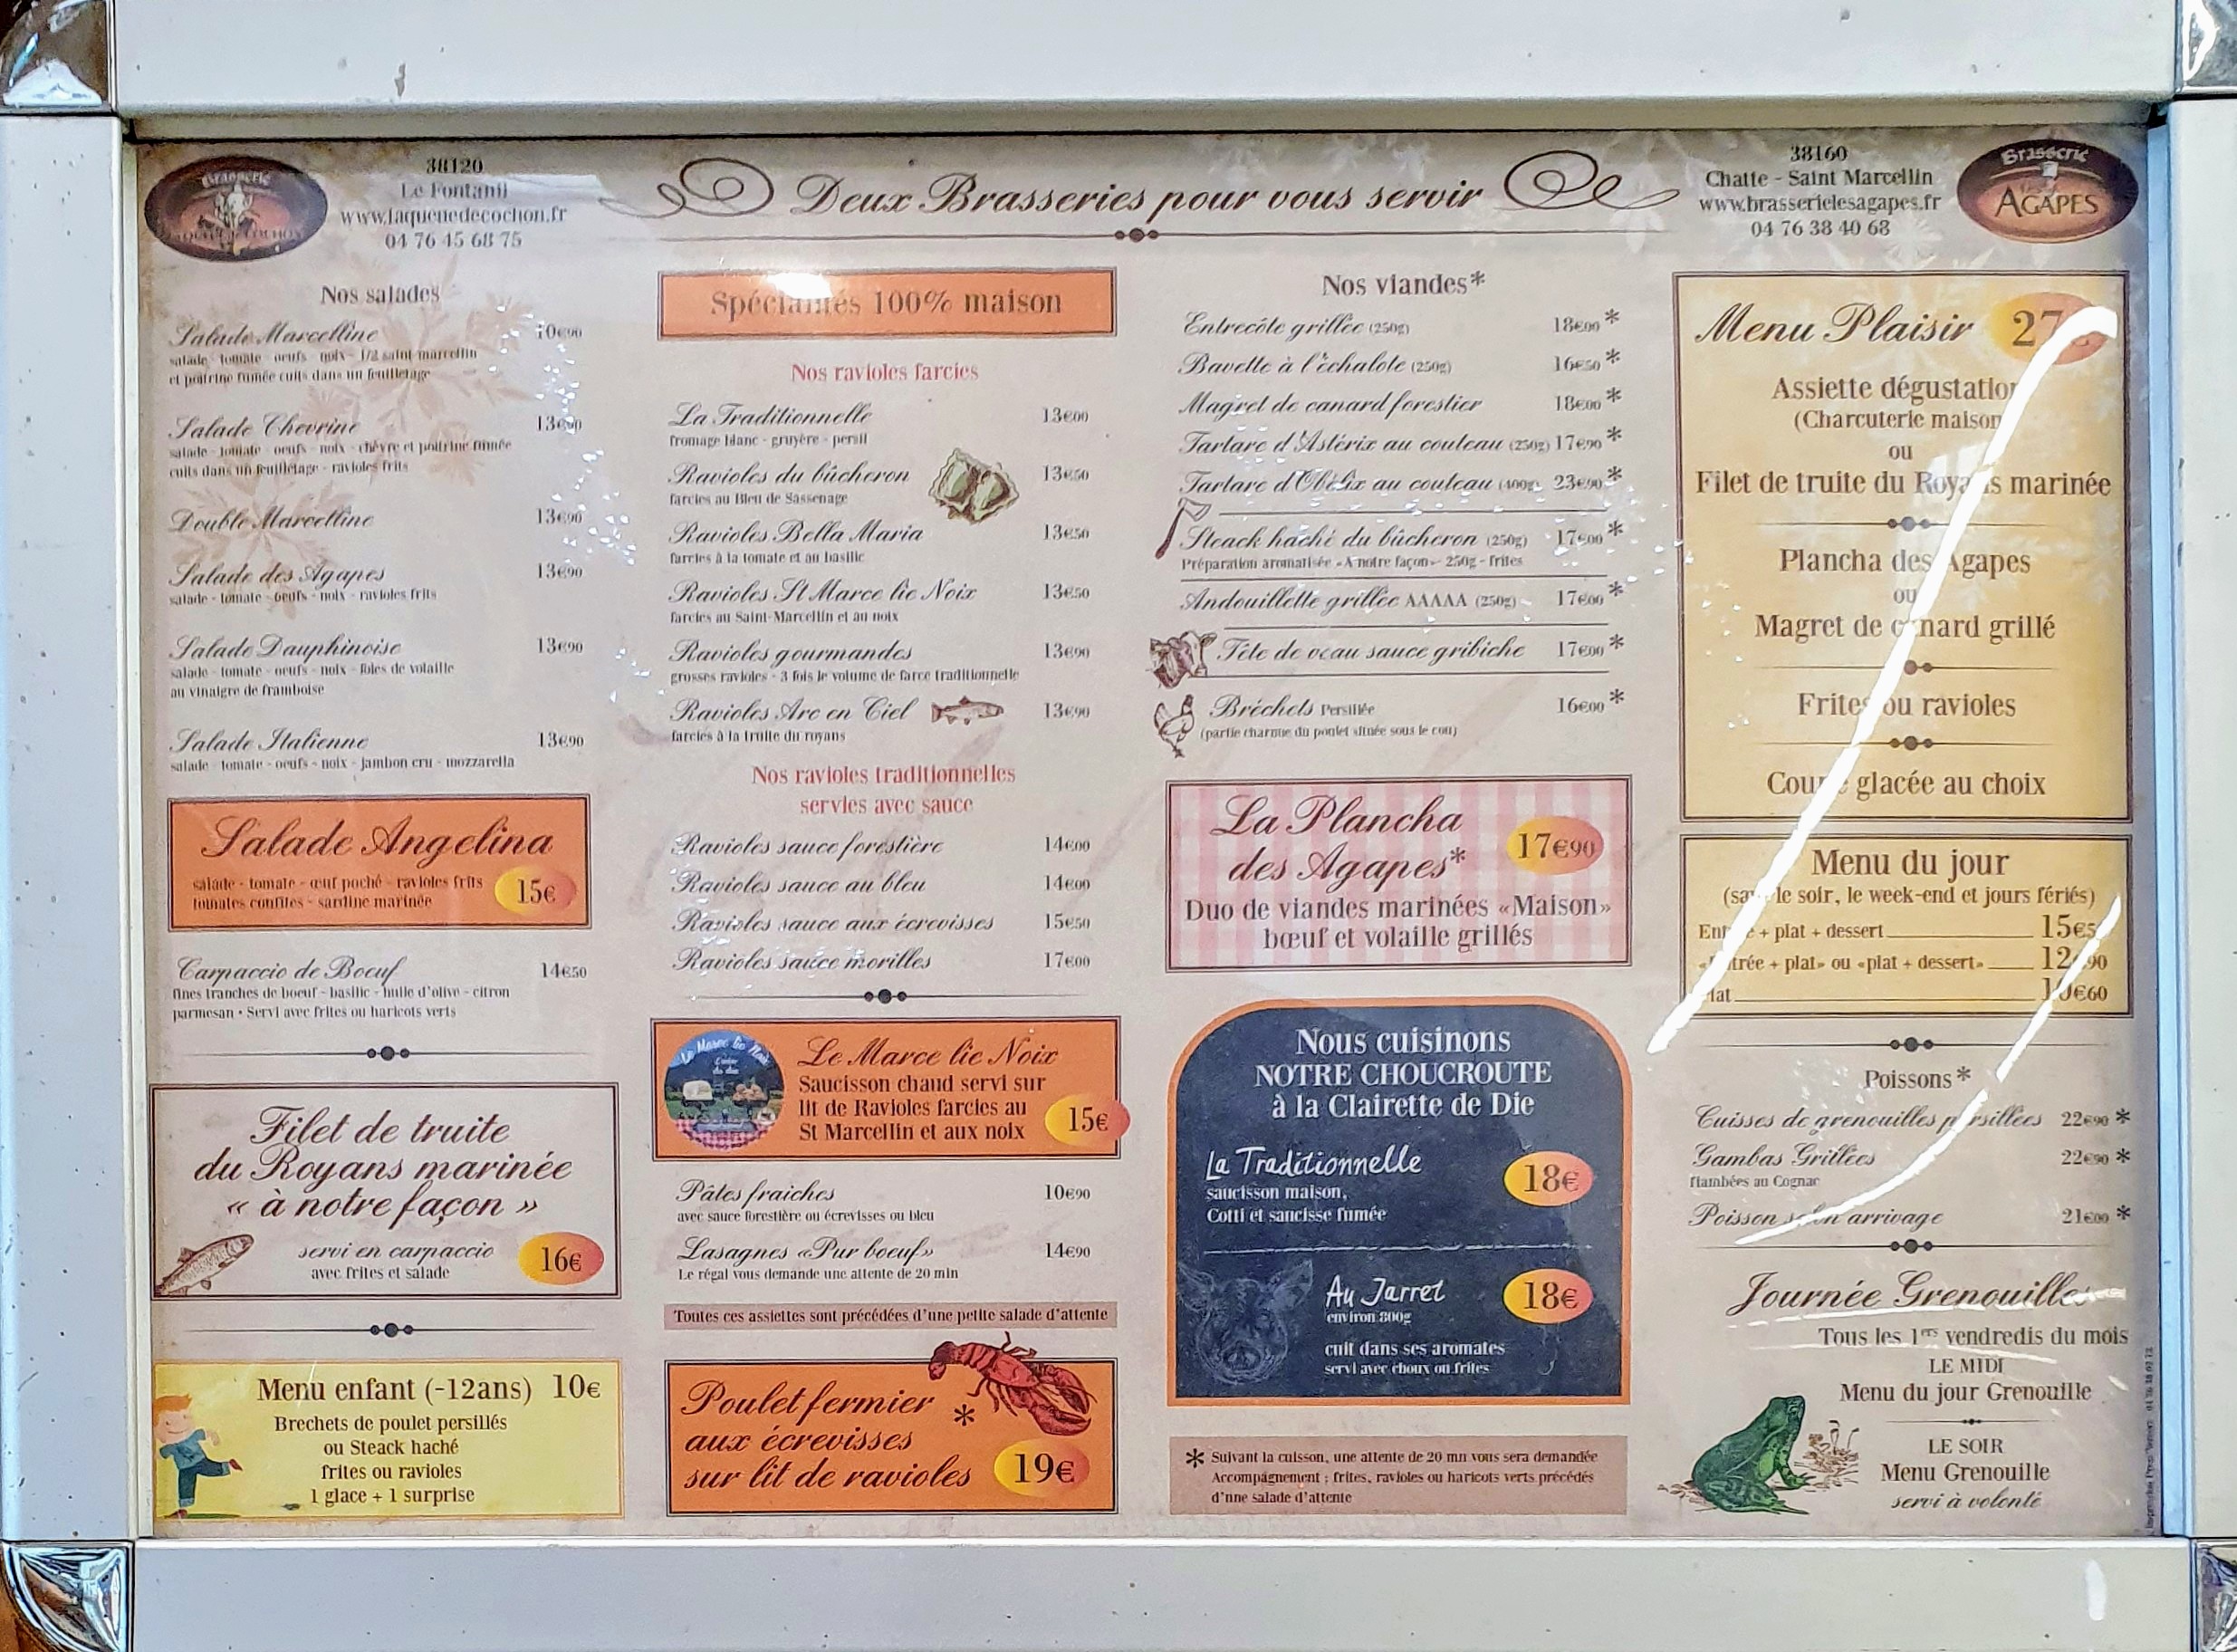 Brasserie
38120
Le Fontanil
www.laqueuedecochon.fr
04 76 45 68 75
Deux Brasseries pour vous servir
38160
Chatte - Saint Marcellin
www.brasserielesagapes.fr
04 76 38 40 68
Brasserie
AGAPES
Nos salades
Salade Marcelline 10€90
salade - tomate - oeufs - noix - 1/2 saint-marcellin
et poitrine fumée cuits dans un feuilletage
Salade Chevrine 13€90
salade - tomate - oeufs - noix - chèvre et poitrine fumée
cuits dans un feuilletage - ravioles frits
Double Marcelline 13€90
Salade des Agapes 13€90
salade - tomate - oeufs - noix - ravioles frits
Salade Dauphinoise 13€90
salade - tomate - oeufs - noix - foies de volaille
au vinaigre de framboise
Salade Italienne 13€90
salade - tomate - oeufs - noix - jambon cru - mozzarella
Salade Angelina
salade - tomate - œuf poché - ravioles frits
tomates confites - sardine marinée
15€
Carpaccio de Boeuf 14€50
fines tranches de boeuf - basilic - huile d'olive - citron
parmesan • Servi avec frites ou haricots verts
Filet de truite
du Royans marinée
« à notre façon »
servi en carpaccio
avec frites et salade
16€
Menu enfant (-12ans) 10€
Brechets de poulet persillés
ou Steack haché
frites ou ravioles
1 glace + 1 surprise
Spécialités 100% maison
Nos ravioles farcies
La Traditionnelle 13€00
fromage blanc - gruyère - persil
Ravioles du bûcheron 13€50
farcies au Bleu de Sassenage
Ravioles Bella Maria 13€50
farcies à la tomate et au basilic
Ravioles St Marce lie Noix 13€50
farcies au Saint-Marcellin et au noix
Ravioles gourmandes 13€90
grosses ravioles - 3 fois le volume de farce traditionnelle
Ravioles Arc en Ciel 13€90
farcies à la truite du royans
Nos ravioles traditionnelles
servies avec sauce
Ravioles sauce forestière 14€00
Ravioles sauce au bleu 14€00
Ravioles sauce aux écrevisses 15€50
Ravioles sauce morilles 17€00
Le Marce lie Noix
Le Marce lie Noix
Saucisson chaud servi sur
lit de Ravioles farcies au
St Marcellin et aux noix
15€
Pâtes fraiches 10€90
avec sauce forestière ou écrevisses ou bleu
Lasagnes «Pur boeuf» 14€90
Le régal vous demande une attente de 20 min
Toutes ces assiettes sont précédées d'une petite salade d'attente
Poulet fermier *
aux écrevisses
sur lit de ravioles 19€
Nos viandes*
Entrecôte grillée (250g) 18€00*
Bavette à l'échalote (250g) 16€50*
Magret de canard forestier 18€00*
Tartare d'Astérix au couteau (250g) 17€90*
Tartare d'Obélix au couteau (400g) 23€90*
Steack haché du bûcheron (250g) 17€00*
Préparation aromatisée «A notre façon» - 250g - frites
Andouillette grillée AAAAA (250g) 17€00*
Tête de veau sauce gribiche 17€00*
Bréchets Persillée 16€00*
(partie charnue du poulet située sous le cou)
La Plancha
des Agapes* 17€90
Duo de viandes marinées «Maison»
bœuf et volaille grillés
Nous cuisinons
NOTRE CHOUCROUTE
à la Clairette de Die
La Traditionnelle
saucisson maison,
Cotti et saucisse fumée
18€
Au Jarret
environ 800g
18€
cuit dans ses aromates
servi avec choux ou frites
* Suivant la cuisson, une attente de 20 mn vous sera demandée
Accompagnement : frites, ravioles ou haricots verts précédés
d'une salade d'attente
Menu Plaisir 27
Assiette dégustation
(Charcuterie maison
ou
Filet de truite du Royans marinée
Plancha des Agapes
ou
Magret de canard grillé
Frites ou ravioles
Coupe glacée au choix
Menu du jour
(sauf le soir, le week-end et jours fériés)
Entrée + plat + dessert 15€5
«Entrée + plat» ou «plat + dessert» 12€90
Plat 10€60
Poissons*
Cuisses de grenouilles persillées 22€90*
Gambas Grillées 22€90*
flambées au Cognac
Poisson selon arrivage 21€00*
Journée Grenouilles
Tous les 1ers vendredis du mois
LE MIDI
Menu du jour Grenouille
LE SOIR
Menu Grenouille
servi à volonté